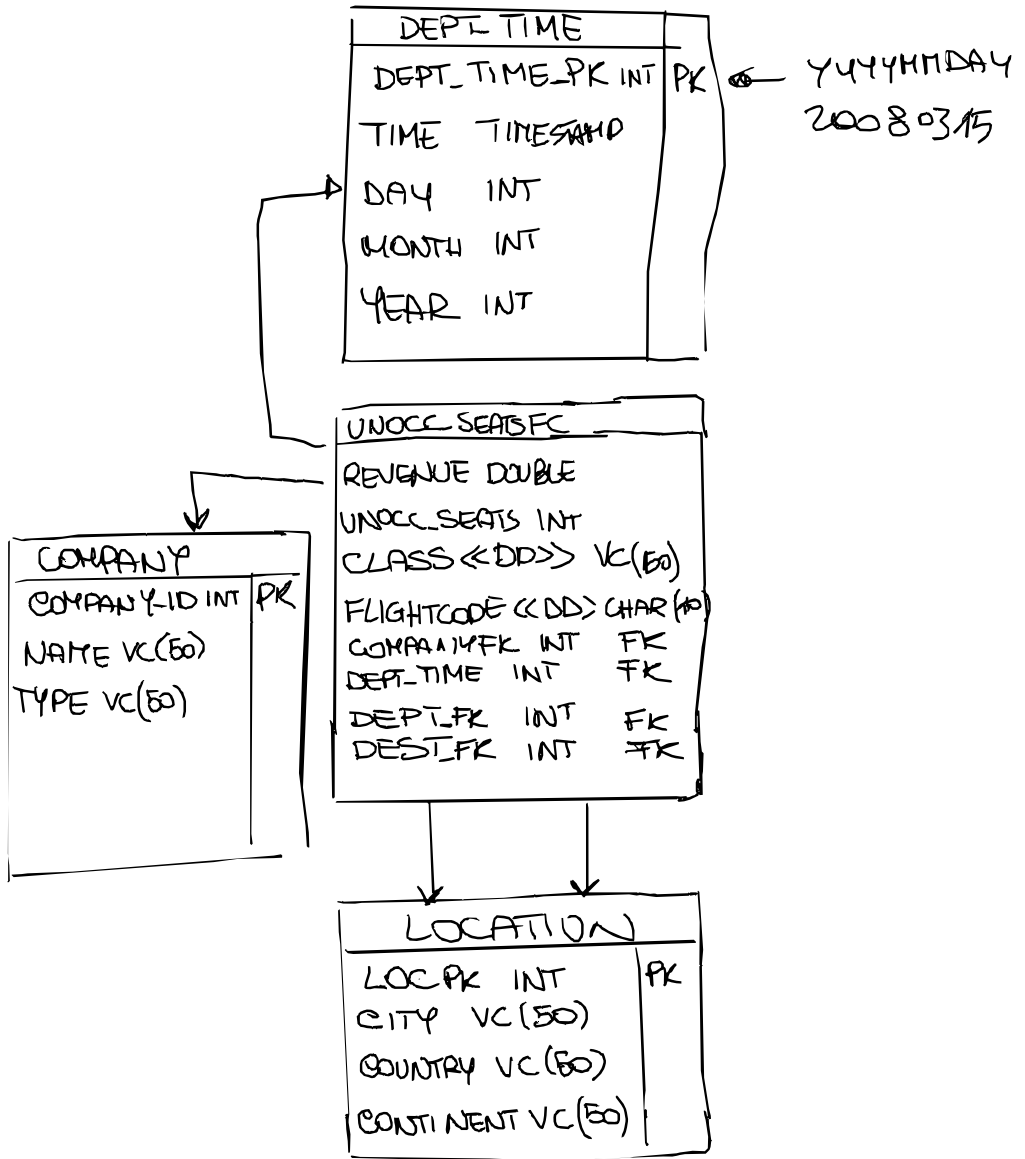 DEPT_TIME
DEPT_TIME_PK INT PK
YYYYMMDAY
TIME TIMESTAMP
20080315
DAY INT
MONTH INT
YEAR INT
UNOCC_SEATSFC
REVENUE DOUBLE
UNOCC_SEATS INT
CLASS <<DD>> VC(50)
FLIGHTCODE <<DD> CHAR(10)
COMPANYFK INT FK
DEPT_TIME INT FK
DEPT_FK INT FK
DEST_FK INT FK
COMPANY
COMPANY_ID INT PK
NAME VC(50)
TYPE VC(50)
LOCATION
LOCPK INT PK
CITY VC(50)
COUNTRY VC(50)
CONTINENT VC(50)